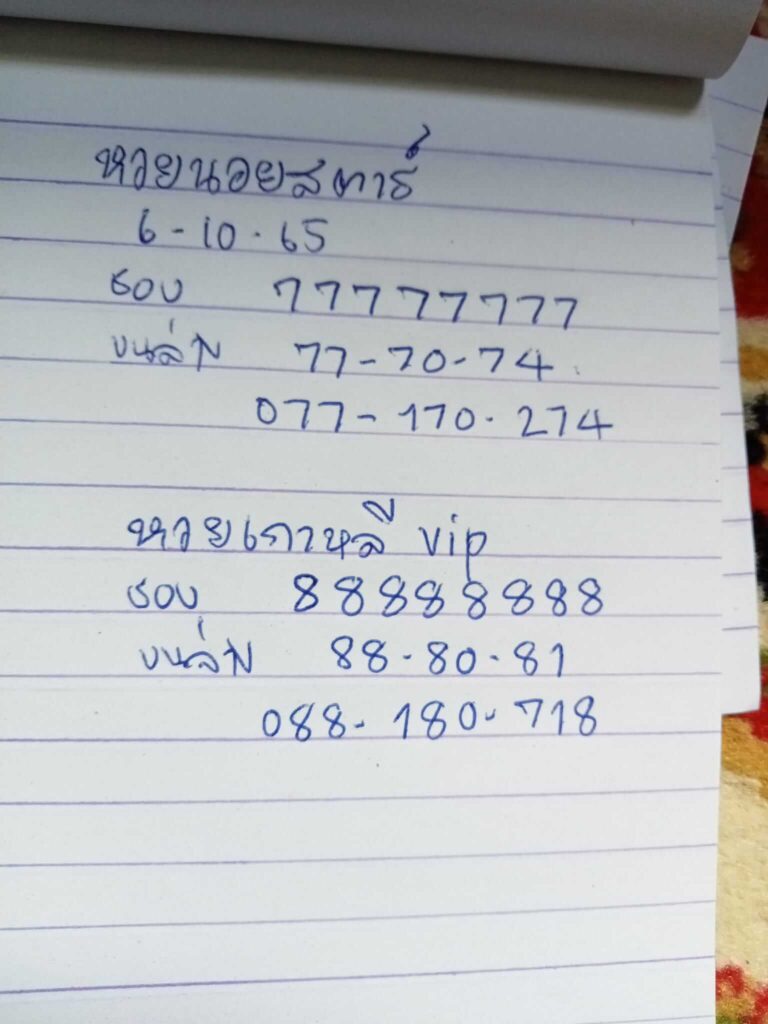 หวยนอยสตาร์
6-10.65
ชอบ 77777777
บนล่าง 77-70-74
077-170.274
หวยเกาหลี vip
ชอบ 88888888
บนล่าง 88-80-81
088-180-718